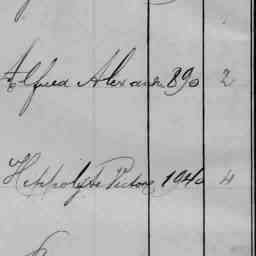 Alfred Alexandre 890 2
Hippolyte Victor 1940 4